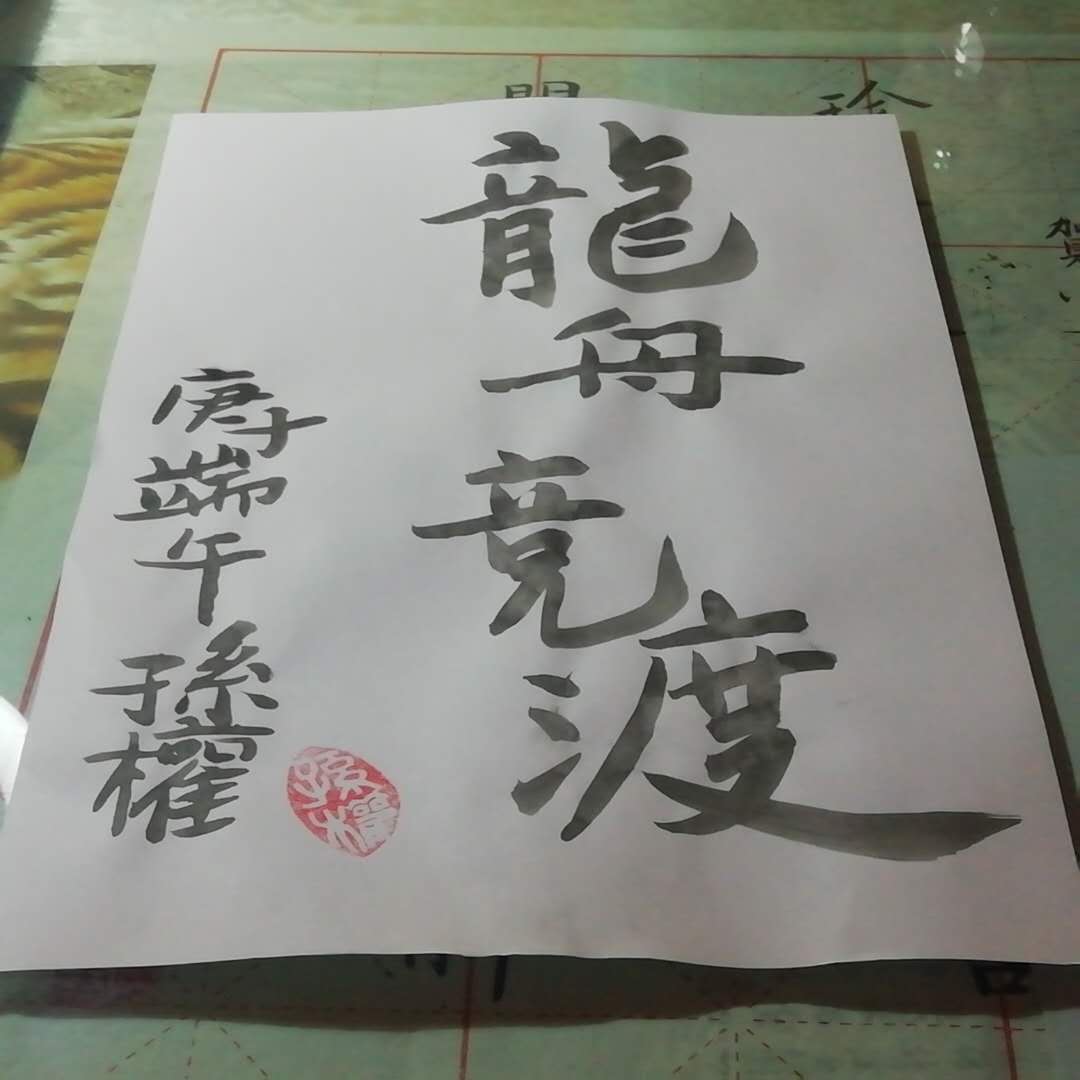 龍舟竞渡
庚子端午孫權
孫權